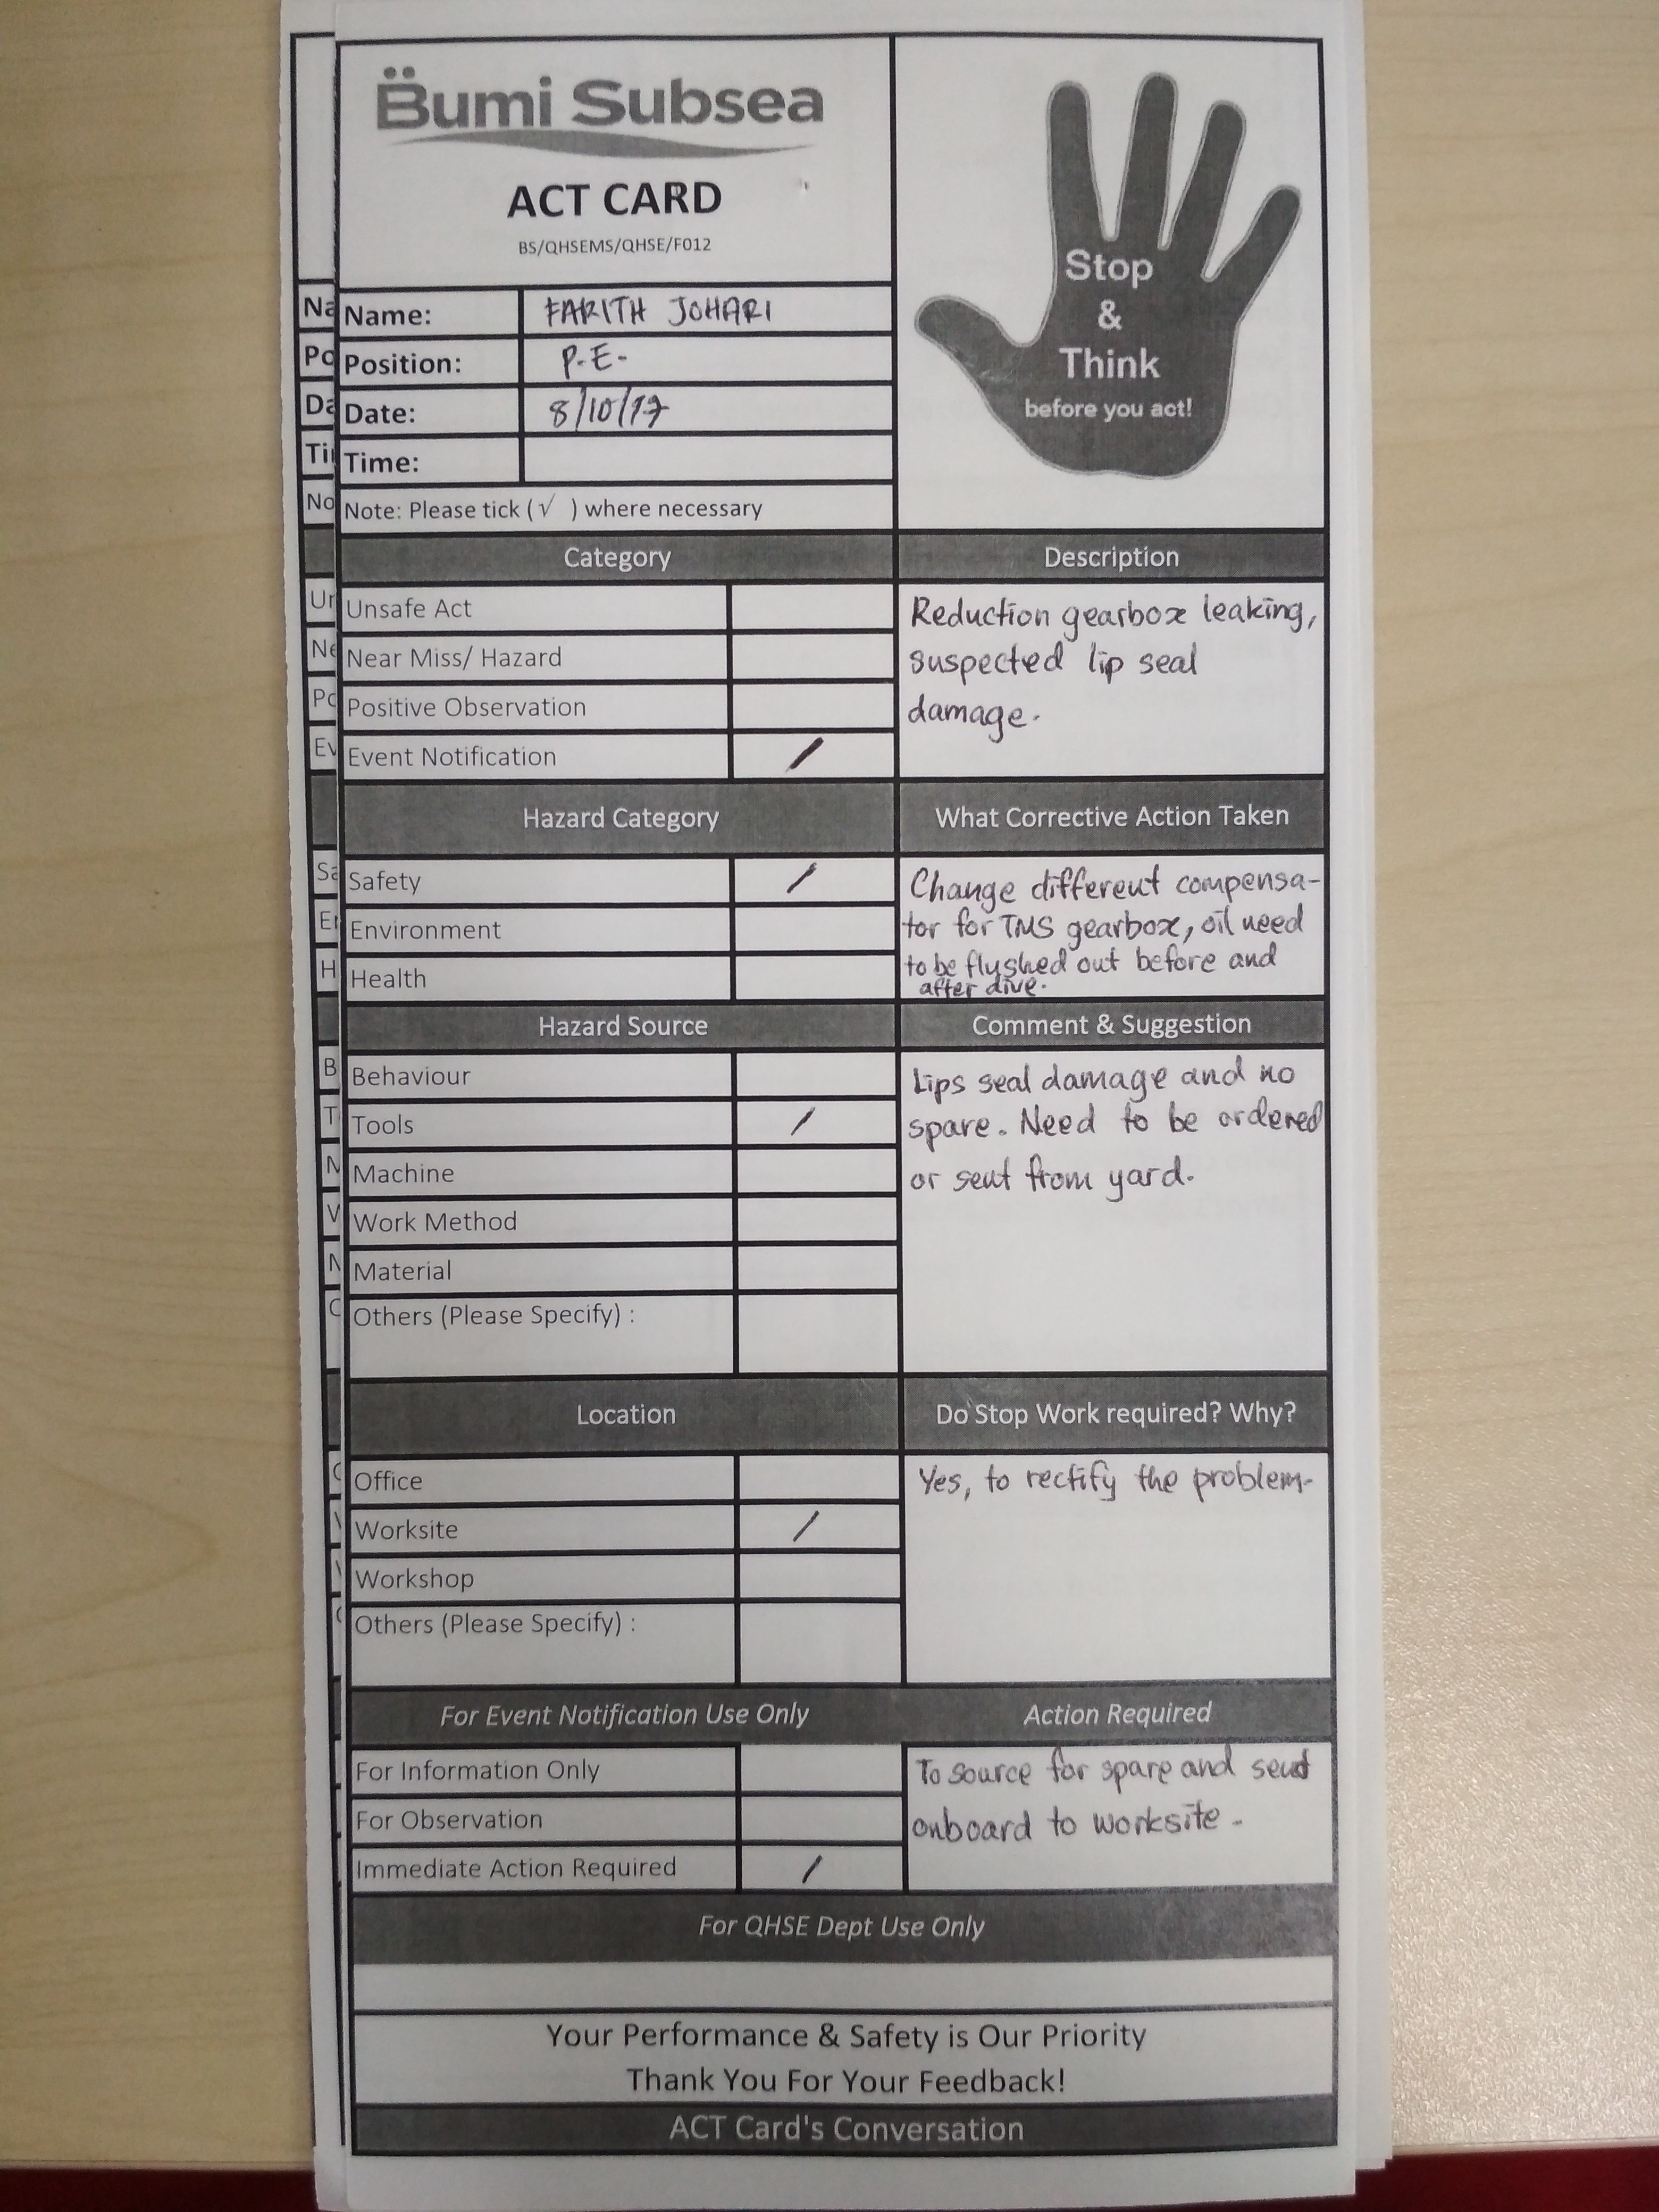 Bumi Subsea
ACT CARD
BS/QHSEMS/QHSE/F012
Stop
&
Think
before you act!
Name: FARITH JOHARI
Position: P.E.
Date: 8/10/17
Time:
Note: Please tick (√ ) where necessary
Category
Unsafe Act
Near Miss/ Hazard
Positive Observation
Event Notification /
Description
Reduction gearbox leaking,
suspected lip seal
damage.
Hazard Category
Safety /
Environment
Health
What Corrective Action Taken
Change different compensa-
tor for TMS gearbox, oil need
to be flushed out before and
after dive.
Hazard Source
Behaviour
Tools /
Machine
Work Method
Material
Others (Please Specify) :
Comment & Suggestion
Lips seal damage and no
spare. Need to be ordered
or sent from yard.
Location
Office
Worksite /
Workshop
Others (Please Specify) :
Do Stop Work required? Why?
Yes, to rectify the problem.
For Event Notification Use Only
For Information Only
For Observation
Immediate Action Required /
Action Required
To source for spare and send
onboard to worksite.
For QHSE Dept Use Only
Your Performance & Safety is Our Priority
Thank You For Your Feedback!
ACT Card's Conversation